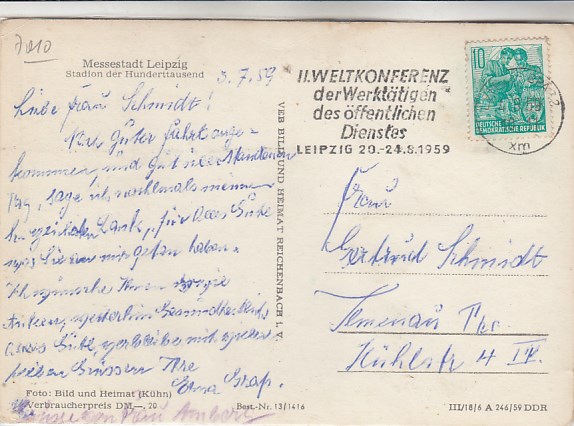 7010
Messestadt Leipzig
Stadion der Hunderttausend
3.7.59
Liebe Frau Schmidt!
Nach guter Fahrt ange-
kommen und gut
Tag, sage ich nochmals meinen
Dank, für alles Gute
was Sie an mir getan haben.
Ich wünsche Ihnen
weiterhin Gesundheit
alles Gute, verbleibe mit vielen
lieben Grüssen Ihre
Erna Graf.
Foto: Bild und Heimat (Kühn)
Verbraucherpreis DM —, 20
Best.-Nr. 13/1416
VEB BILD UND HEIMAT REICHENBACH I. V.
II. WELTKONFERENZ
der Werktätigen
des öffentlichen
Dienstes
LEIPZIG 20.-24.8.1959
10
DEUTSCHE
DEMOKRATISCHE REPUBLIK
xm
Frau
Gertrud Schmidt
Ilmenau Thr.
Kühlstr 4 IV.
III/18/6 A 246/59 DDR